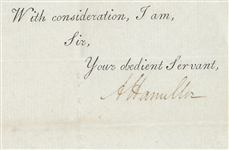 With consideration, I am,
Sir,
Your obedient Servant,
A Hamilton